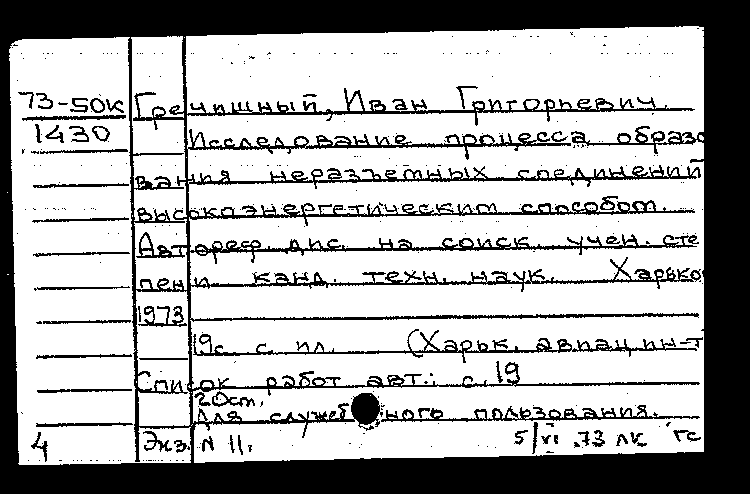 73-50к Гречишный, Иван Григорьевич.
1430 Исследование процесса образо
вания неразъемных соединений
высокоэнергетическим способом.
Автореф. дис. на соиск. учен. сте
пени канд. техн. наук. Харьков
1973
19с. с ил. (Харьк. авиац. ин-т
Список работ авт.: с. 19
20см.
Для служебного пользования.
4 Экз. N 11. 5/VI .73 ЛК ГС